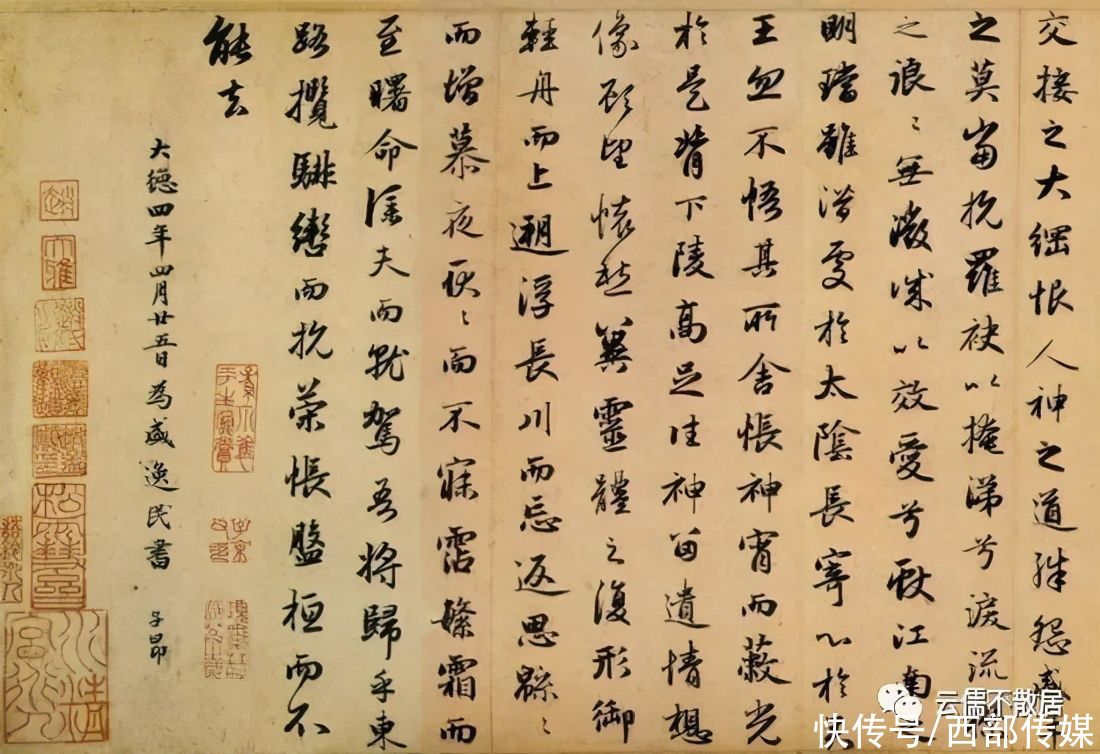 交接之大綱恨人神之道殊怨盛
之莫當抗羅袂以掩涕兮淚流
之浪〻無微誠以效愛兮獻江南
明璫雖潛處於太陰長寄心於
王忽不悟其所舍悵神宵而蔽光
於是背下陵高足往神留遺情想
像顧望懷愁冀靈體之復形御
輕舟而上遡浮長川而忘返思緜〻
而增慕夜耿〻而不寐霑繁霜而
至曙命僕夫而就駕吾將歸乎東
路攬騑轡而抗策悵盤桓而不
能去
大德四年四月廿五日為盛逸民書 子昂
趙
大雅
松雪齋
云儒不散居
快传号/西部传媒